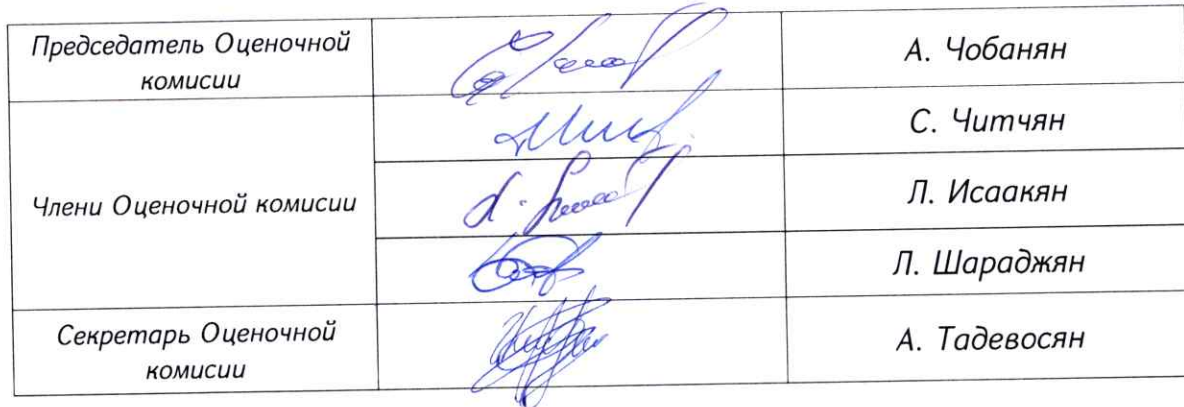 Председатель Оценочной
комисии
А. Чобанян
Члени Оценочной комисии
С. Читчян
Л. Исаакян
Л. Шараджян
Секретарь Оценочной
комисии
А. Тадевосян